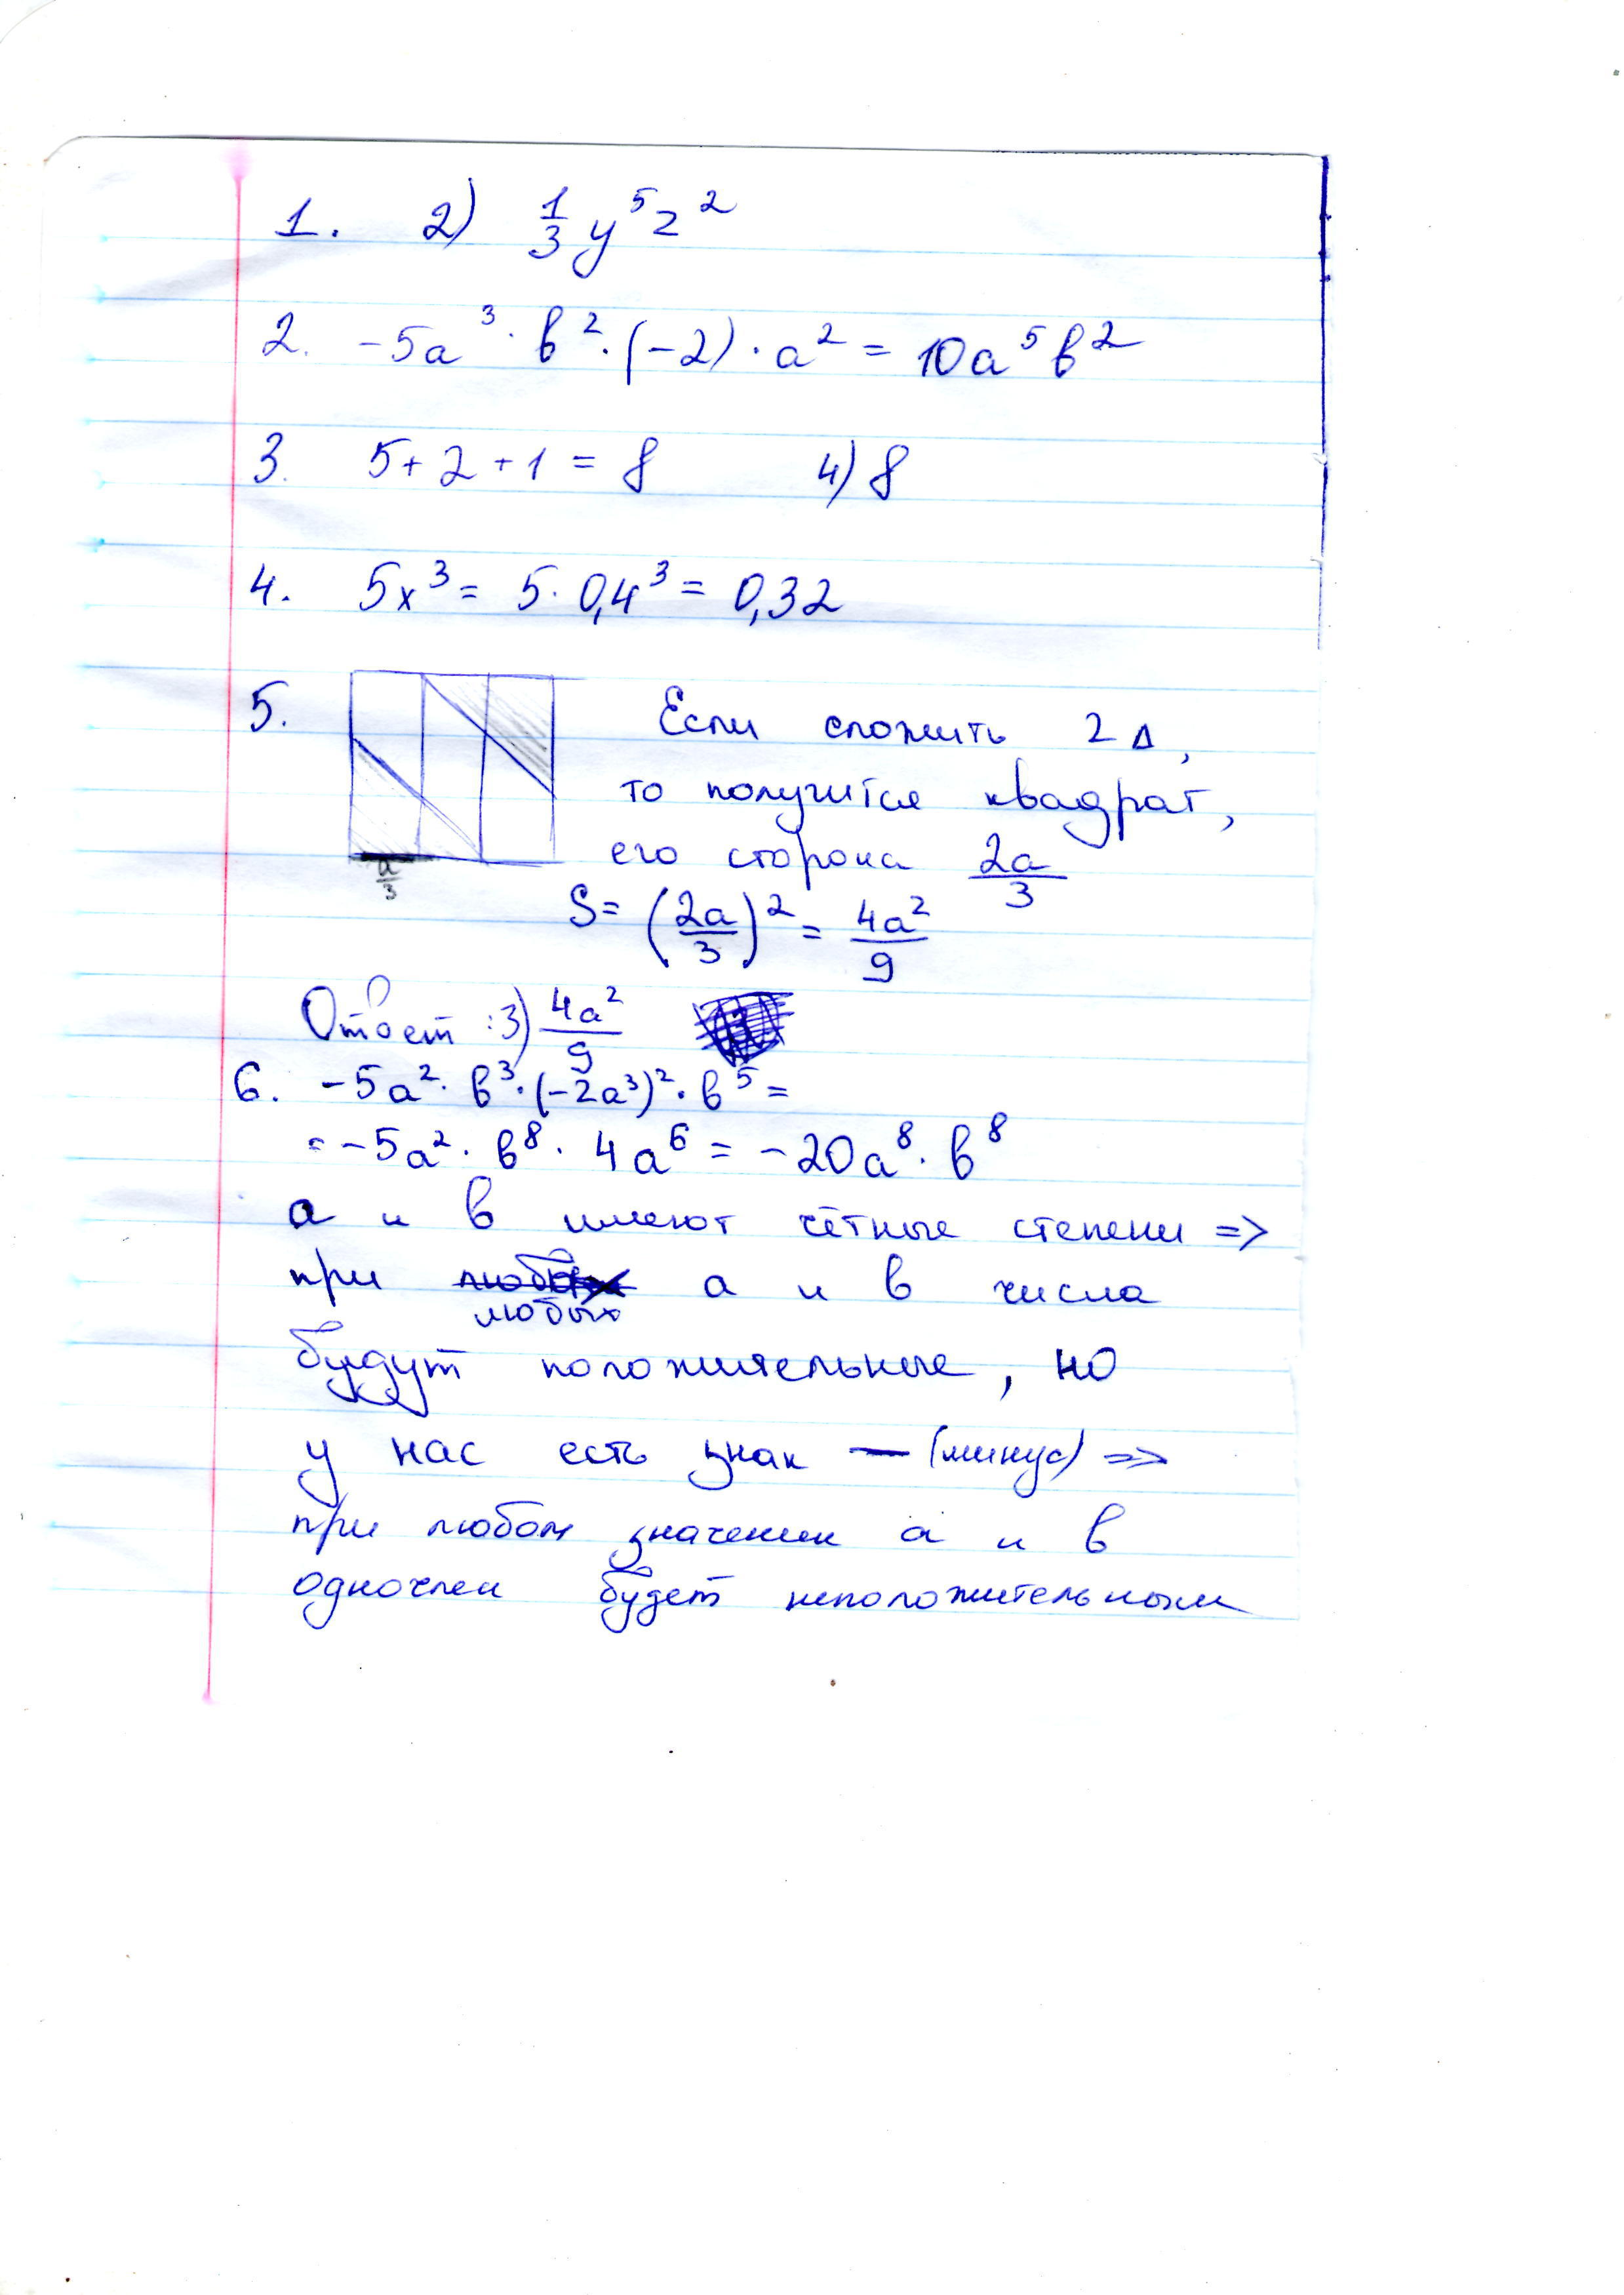 1. 2) 1/3 y⁵z²
2. -5a³·b²·(-2)·a² = 10a⁵b²
3. 5+2+1 = 8 4) 8
4. 5x³ = 5·0,4³ = 0,32
5. Если сложить 2 Δ,
то получится квадрат,
его сторона 2a/3
a/3
S = (2a/3)² = 4a²/9
Ответ: 3) 4a²/9
6. -5a²·b³·(-2a³)²·b⁵ =
= -5a²·b⁸·4a⁶ = -20a⁸·b⁸
a и b имеют чётные степени =>
при любых a и b числа
будут положительные, но
у нас есть знак — (минус) =>
при любом значении a и b
одночлен будет неположительным